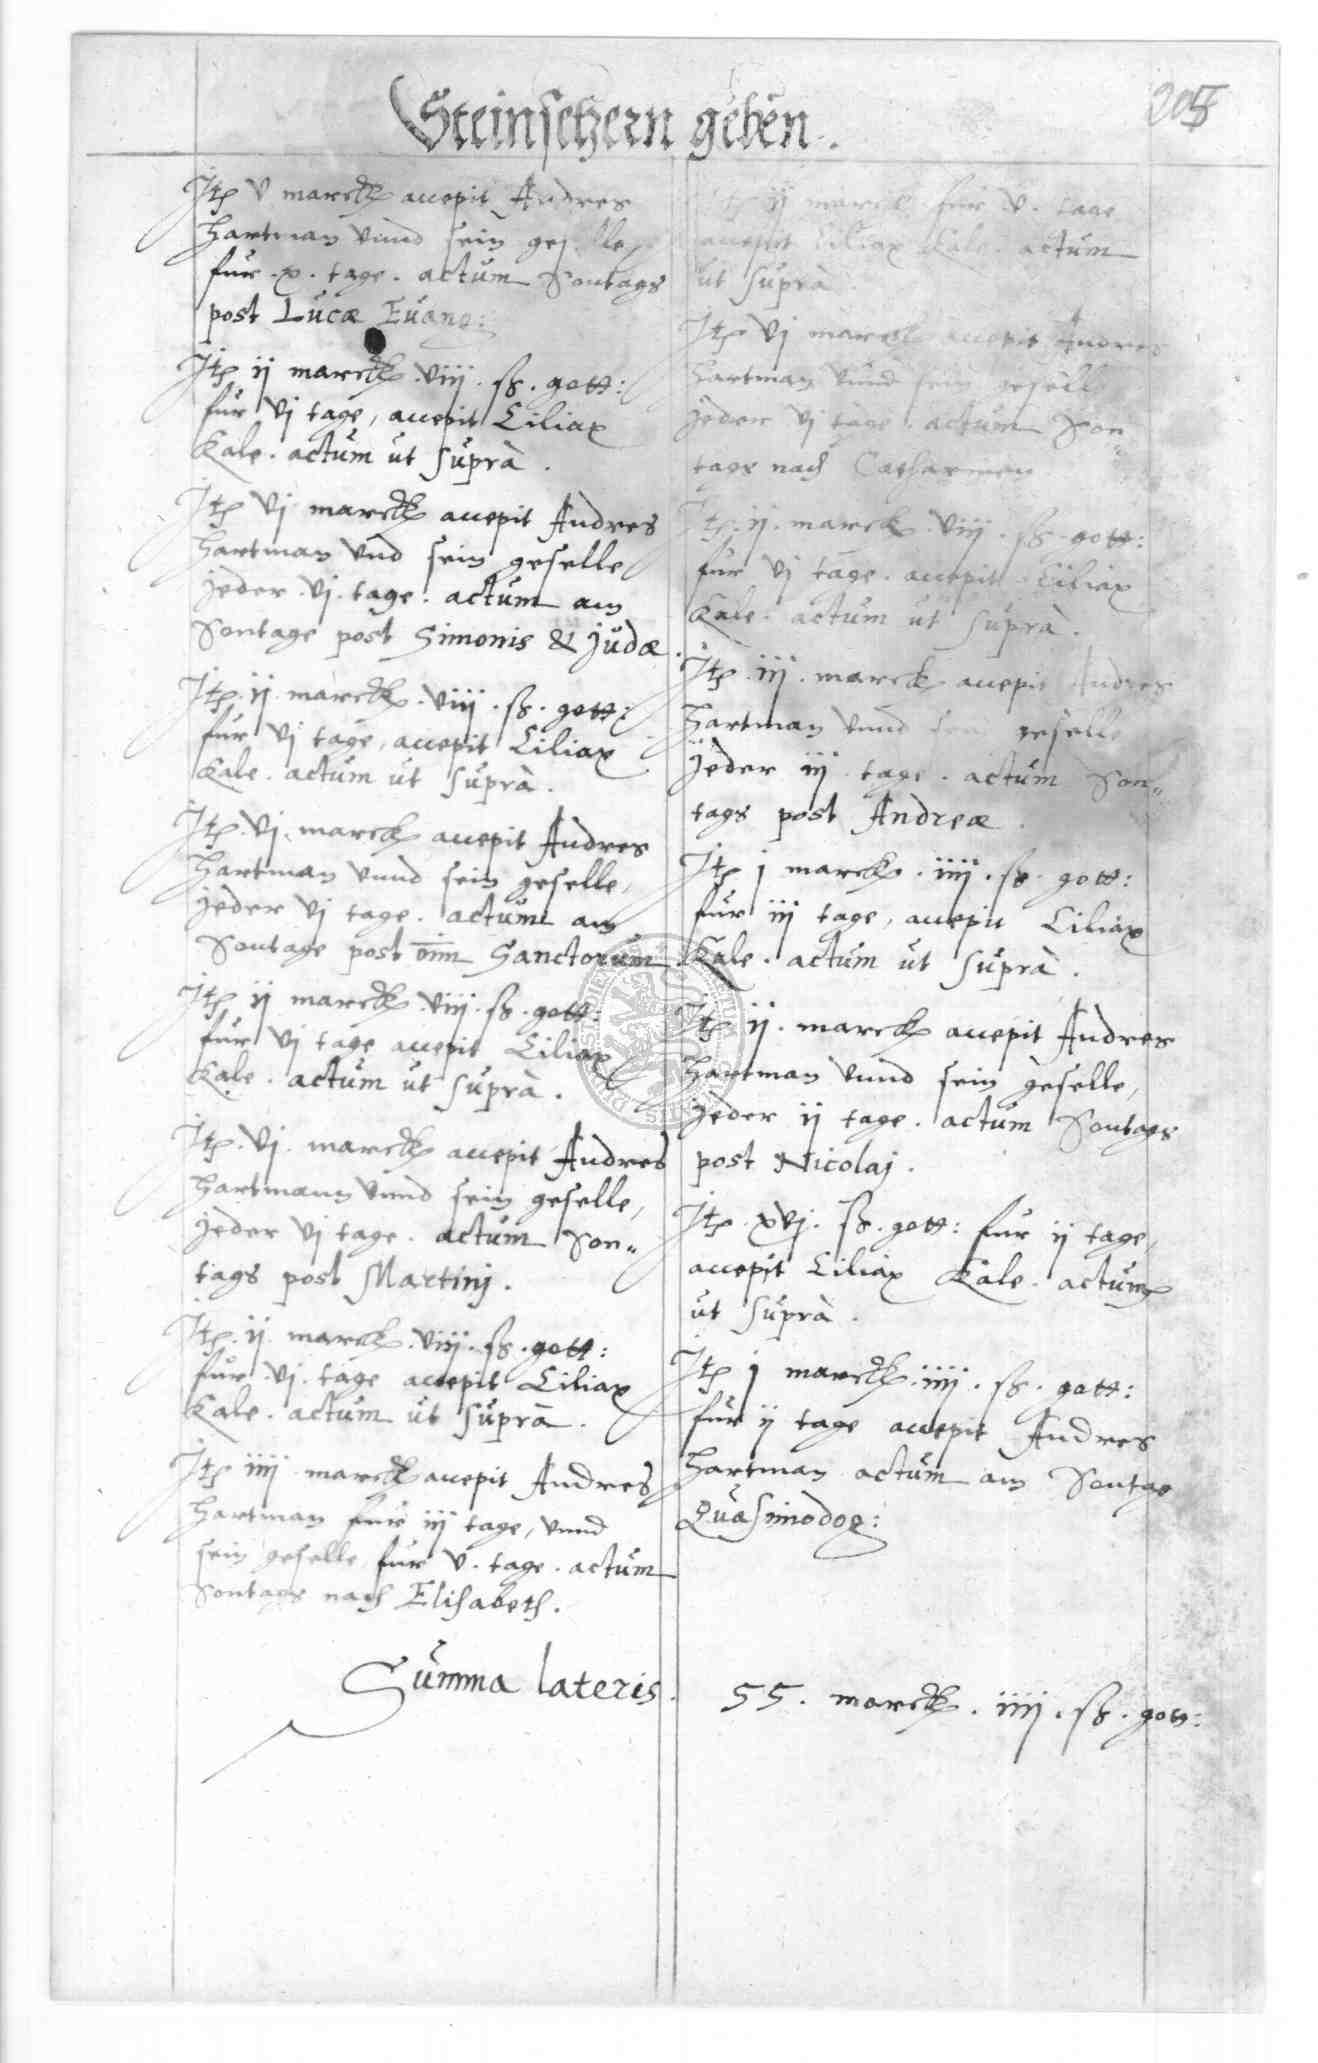 Steinsetzern geben.
205
Jtē V marckē accepit Andres
Hartman Vnnd sein geselle
fur .x. tage. actum Sontags
post Lucæ Euang:
Jtē ij marckē .viij. ß. gott:
fur Vj tage, accepit Ciliax
Kale. actum ut suprà.
Jtē Vj marckē accepit Andres
Hartman Vnd sein geselle
jeder .Vj. tage. actum am
Sontage post Simonis & judæ.
Jtē .ij. marckē .viij. ß. gott:
fur Vj tage, accepit Ciliax
Kale. actum ut suprà.
Jtē .Vj. marck accepit Andres
Hartman Vnnd sein geselle,
jeder Vj tage. actum am
Sontage post oīm Sanctorum
Jtē ij marckē viij. ß. gott:
fur Vj tage accepit Ciliax
Kale. actum ut suprà.
Jtē .Vj. marckē accepit Andres
Hartmann Vnnd sein geselle,
jeder Vj tage. actum Son=
tags post Martinj.
Jtē .ij. marck .viij. ß. gott:
fur .Vj. tage accepit Ciliax
Kale. actum ut suprà.
Jtē iiij marck accepit Andres
Hartman fur iij tage, Vnnd
sein geselle fur V. tage. actum
Sontags nach Elisabeth.
Jtē ij marck fur .V. tage
accepit Ciliax Kale. actum
ut suprà.
Jtē Vj marck accepit Andres
Hartman Vnnd sein geselle
jeder Vj tage. actum Son=
tags nach Catharinen
Jtē .ij. marck .viij. ß. gott:
fur Vj tage. accepit Ciliax
Kale. actum ut suprà.
Jtē .iij. marck accepit Andres
Hartman Vnnd sein geselle
jeder iij tage. actum Son=
tags post Andreæ.
Jtē j marck .iiij. ß. gott:
fur iij tage, accepit Ciliax
Kale. actum ut suprà.
Jtē ij. marck accepit Andres
Hartman Vnnd sein geselle,
jeder ij tage. actum Sontags
post Nicolaj.
Jtē .xvj. ß. gott: fur ij tage,
accepit Ciliax Kale. actum
ut suprà.
Jtē j marckē .iiij. ß. gott:
fur ij tage accepit Andres
Hartman actum am Sontag
Quasimodog:
Summa lateris. 55. marckē .iiij. ß. gott: